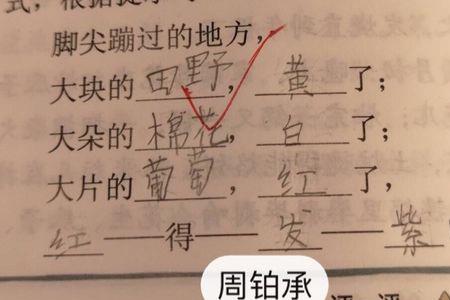 式，根据提示
脚尖蹦过的地方，
大块的田野，黄了；
大朵的棉花，白了；
大片的葡萄，红了，
红——得发——紫
周铂承
评 评